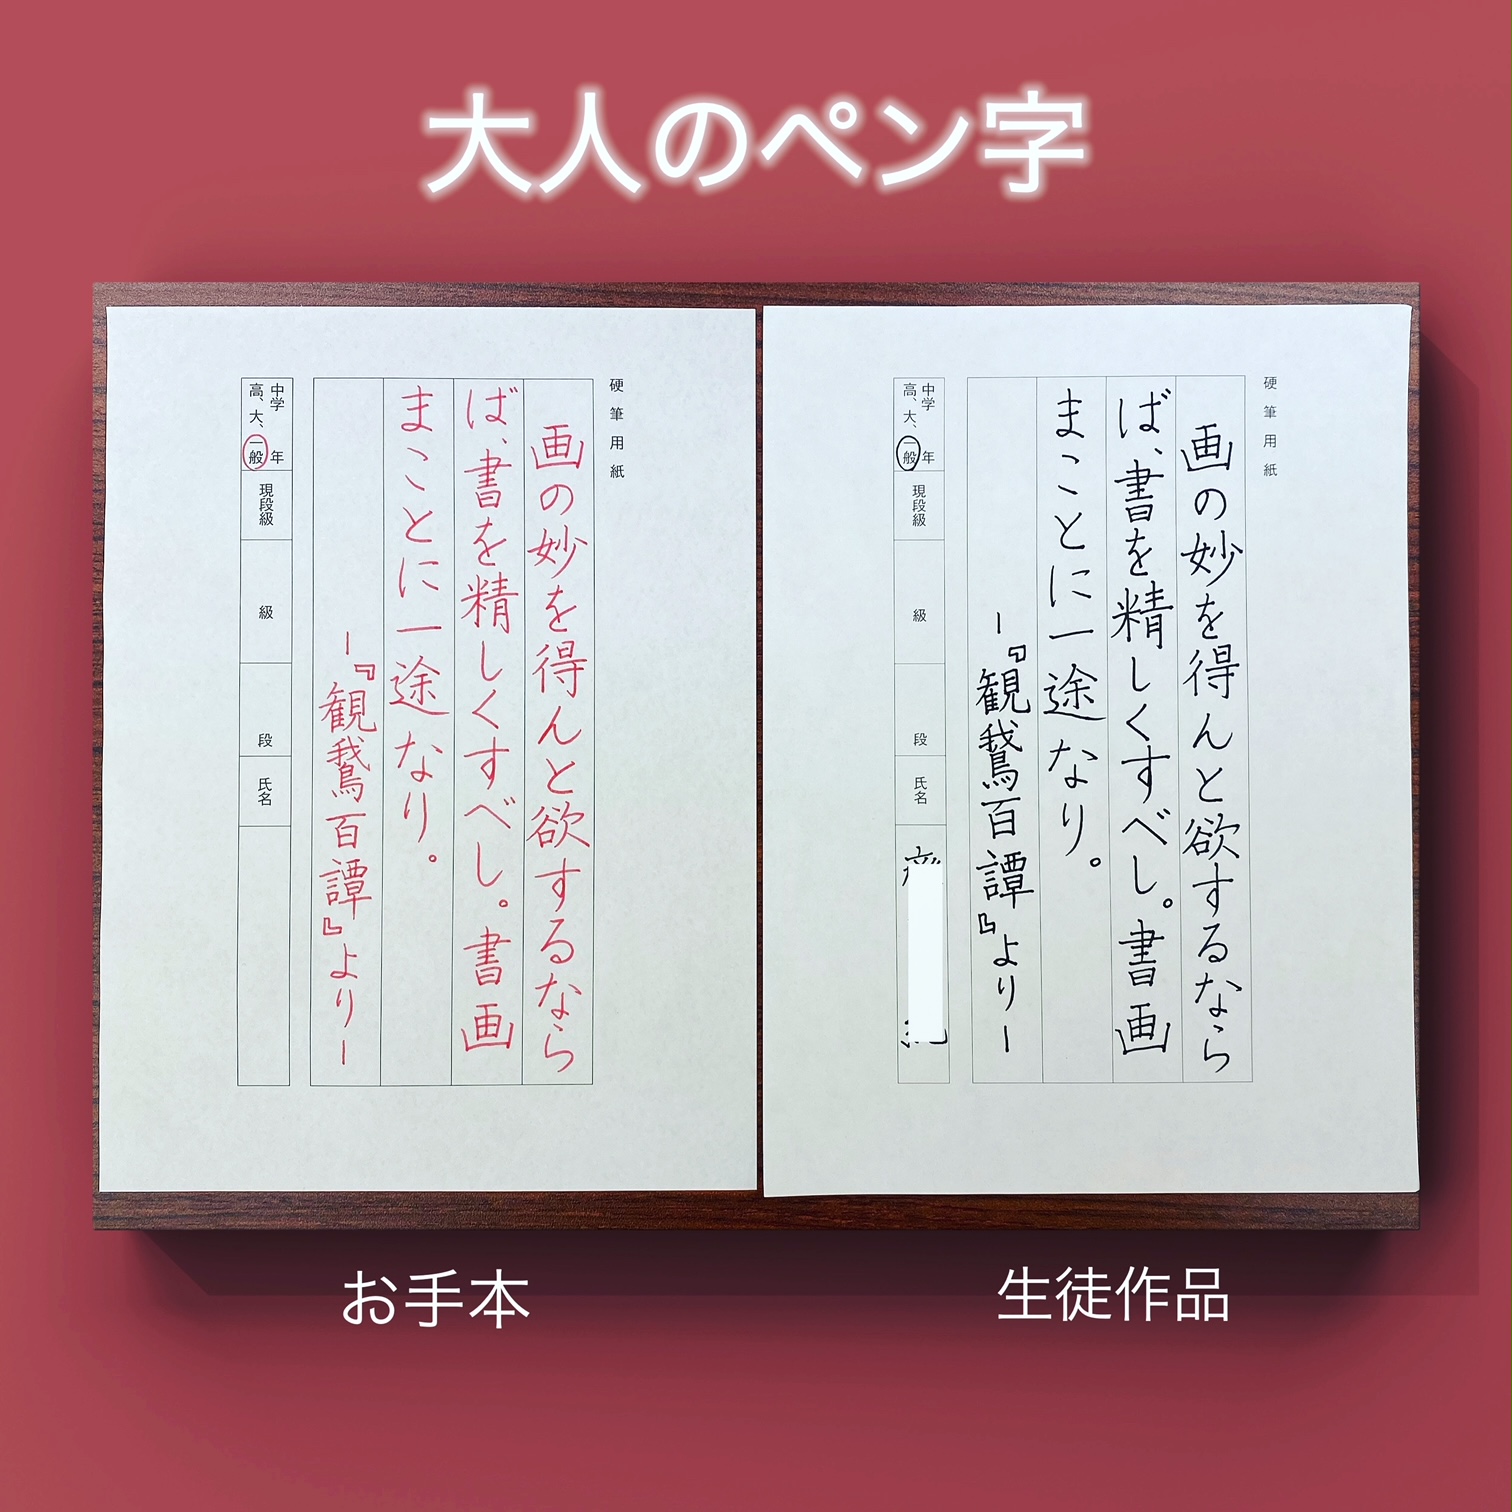 大人のペン字
硬筆用紙
画の妙を得んと欲するなら
ば、書を精しくすべし。書画
まことに一途なり。
ー『観鵞百譚』よりー
中学 年
高、大、一般
現段級
級
段
氏名
硬筆用紙
画の妙を得んと欲するなら
ば、書を精しくすべし。書画
まことに一途なり。
ー『観鵞百譚』よりー
中学 年
高、大、一般
現段級
級
段
氏名
お手本
生徒作品